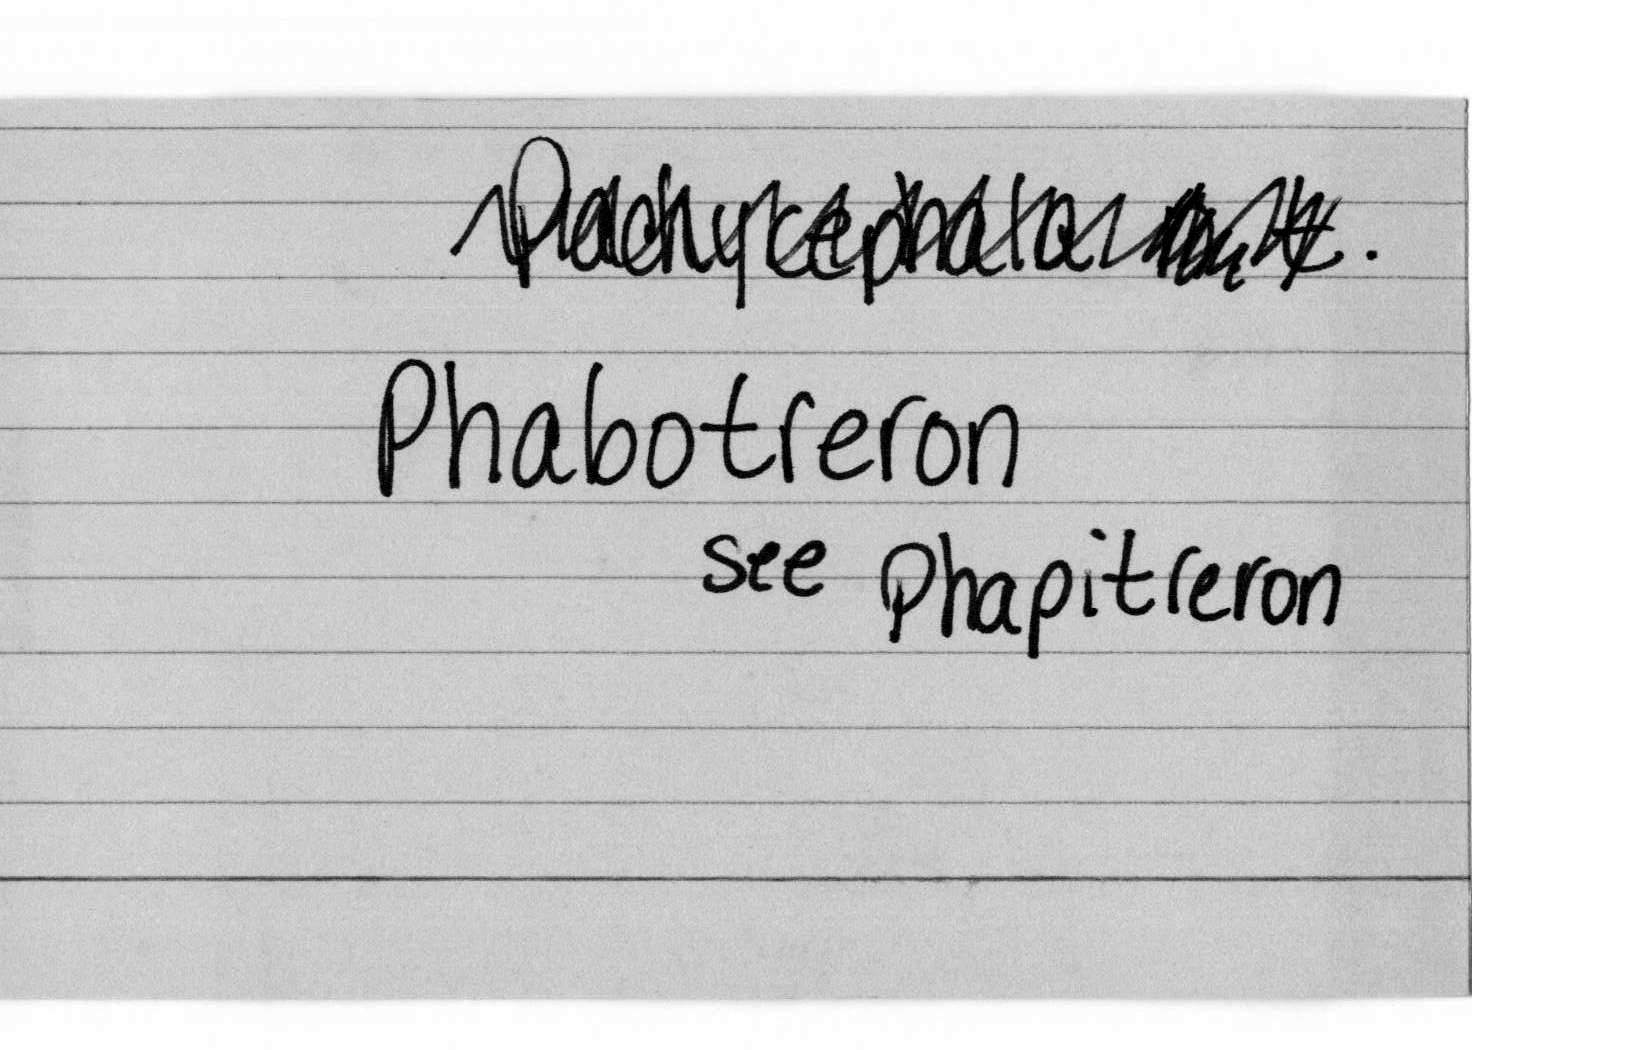 Pachycephala
Phabotreron
see Phapitreron